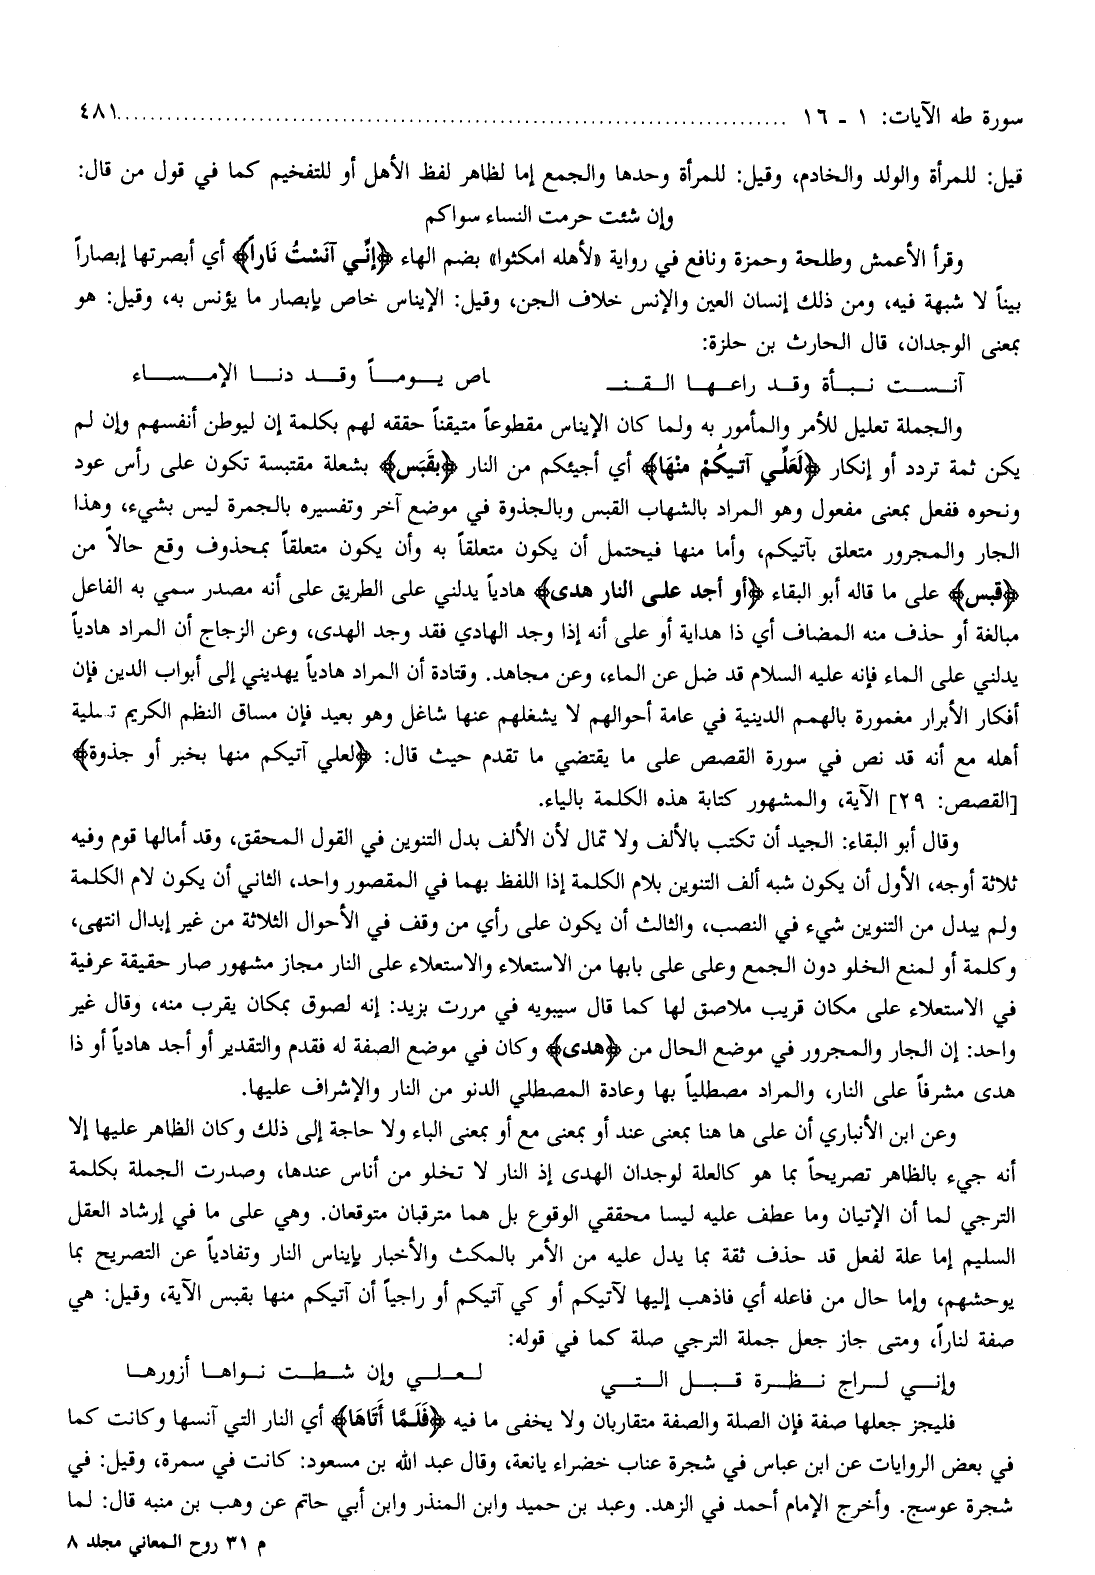 سورة طه الآيات: ١ ـ ١٦ ........................................................................ ٤٨١
قيل: للمرأة والولد والخادم، وقيل: للمرأة وحدها والجمع إما لظاهر لفظ الأهل أو للتفخيم كما في قول من قال:
وإن شئت حرمت النساء سواكم
وقرأ الأعمش وطلحة وحمزة ونافع في رواية «لأهله امكثوا» بضم الهاء ﴿إنِّي آنَسْتُ نَاراً﴾ أي أبصرتها إبصاراً
بيناً لا شبهة فيه، ومن ذلك إنسان العين والإنس خلاف الجن، وقيل: الإيناس خاص بإبصار ما يؤنس به، وقيل: هو
بمعنى الوجدان، قال الحارث بن حلزة:
آنست نبأة وقد راعها القنـ ـاص يوماً وقد دنا الإمساء
والجملة تعليل للأمر والمأمور به ولما كان الإيناس مقطوعاً متيقناً حققه لهم بكلمة إن ليوطن أنفسهم وإن لم
يكن ثمة تردد أو إنكار ﴿لَعَلِّي آتيكُمْ منْهَا﴾ أي أجيئكم من النار ﴿بقَبَس﴾ بشعلة مقتبسة تكون على رأس عود
ونحوه ففعل بمعنى مفعول وهو المراد بالشهاب القبس وبالجذوة في موضع آخر وتفسيره بالجمرة ليس بشيء، وهذا
الجار والمجرور متعلق بآتيكم، وأما منها فيحتمل أن يكون متعلقاً به وأن يكون متعلقاً بمحذوف وقع حالاً من
﴿قبس﴾ على ما قاله أبو البقاء ﴿أو أجد على النار هدى﴾ هادياً يدلني على الطريق على أنه مصدر سمي به الفاعل
مبالغة أو حذف منه المضاف أي ذا هداية أو على أنه إذا وجد الهادي فقد وجد الهدى، وعن الزجاج أن المراد هادياً
يدلني على الماء فإنه عليه السلام قد ضل عن الماء، وعن مجاهد. وقتادة أن المراد هادياً يهديني إلى أبواب الدين فإن
أفكار الأبرار مغمورة بالهمم الدينية في عامة أحوالهم لا يشغلهم عنها شاغل وهو بعيد فإن مساق النظم الكريم تسلية
أهله مع أنه قد نص في سورة القصص على ما يقتضي ما تقدم حيث قال: ﴿لعلي آتيكم منها بخبر أو جذوة﴾
[القصص: ٢٩] الآية، والمشهور كتابة هذه الكلمة بالياء.
وقال أبو البقاء: الجيد أن تكتب بالألف ولا تمال لأن الألف بدل التنوين في القول المحقق، وقد أمالها قوم وفيه
ثلاثة أوجه، الأول أن يكون شبه ألف التنوين بلام الكلمة إذا اللفظ بهما في المقصور واحد، الثاني أن يكون لام الكلمة
ولم يبدل من التنوين شيء في النصب، والثالث أن يكون على رأي من وقف في الأحوال الثلاثة من غير إبدال انتهى،
وكلمة أو لمنع الخلو دون الجمع وعلى على بابها من الاستعلاء والاستعلاء على النار مجاز مشهور صار حقيقة عرفية
في الاستعلاء على مكان قريب ملاصق لها كما قال سيبويه في مررت بزيد: إنه لصوق بمكان يقرب منه، وقال غير
واحد: إن الجار والمجرور في موضع الحال من ﴿هدى﴾ وكان في موضع الصفة له فقدم والتقدير أو أجد هادياً أو ذا
هدى مشرفاً على النار، والمراد مصطلياً بها وعادة المصطلي الدنو من النار والإشراف عليها.
وعن ابن الأنباري أن على ها هنا بمعنى عند أو بمعنى مع أو بمعنى الباء ولا حاجة إلى ذلك وكان الظاهر عليها إلا
أنه جيء بالظاهر تصريحاً بما هو كالعلة لوجدان الهدى إذ النار لا تخلو من أناس عندها، وصدرت الجملة بكلمة
الترجي لما أن الإتيان وما عطف عليه ليسا محققي الوقوع بل هما مترقبان متوقعان. وهي على ما في إرشاد العقل
السليم إما علة لفعل قد حذف ثقة بما يدل عليه من الأمر بالمكث والأخبار بإيناس النار وتفادياً عن التصريح بما
يوحشهم، وإما حال من فاعله أي فاذهب إليها لآتيكم أو كي آتيكم أو راجياً أن آتيكم منها بقبس الآية، وقيل: هي
صفة لناراً، ومتى جاز جعل جملة الترجي صلة كما في قوله:
وإني لراج نظرة قبل التي لعلي وإن شطت نواها أزورها
فليجز جعلها صفة فإن الصلة والصفة متقاربان ولا يخفى ما فيه ﴿فَلَمَّا أَتَاهَا﴾ أي النار التي آنسها وكانت كما
في بعض الروايات عن ابن عباس في شجرة عناب خضراء يانعة، وقال عبد الله بن مسعود: كانت في سمرة، وقيل: في
شجرة عوسج. وأخرج الإمام أحمد في الزهد. وعبد بن حميد وابن المنذر وابن أبي حاتم عن وهب بن منبه قال: لما
م ٣١ روح المعاني مجلد ٨